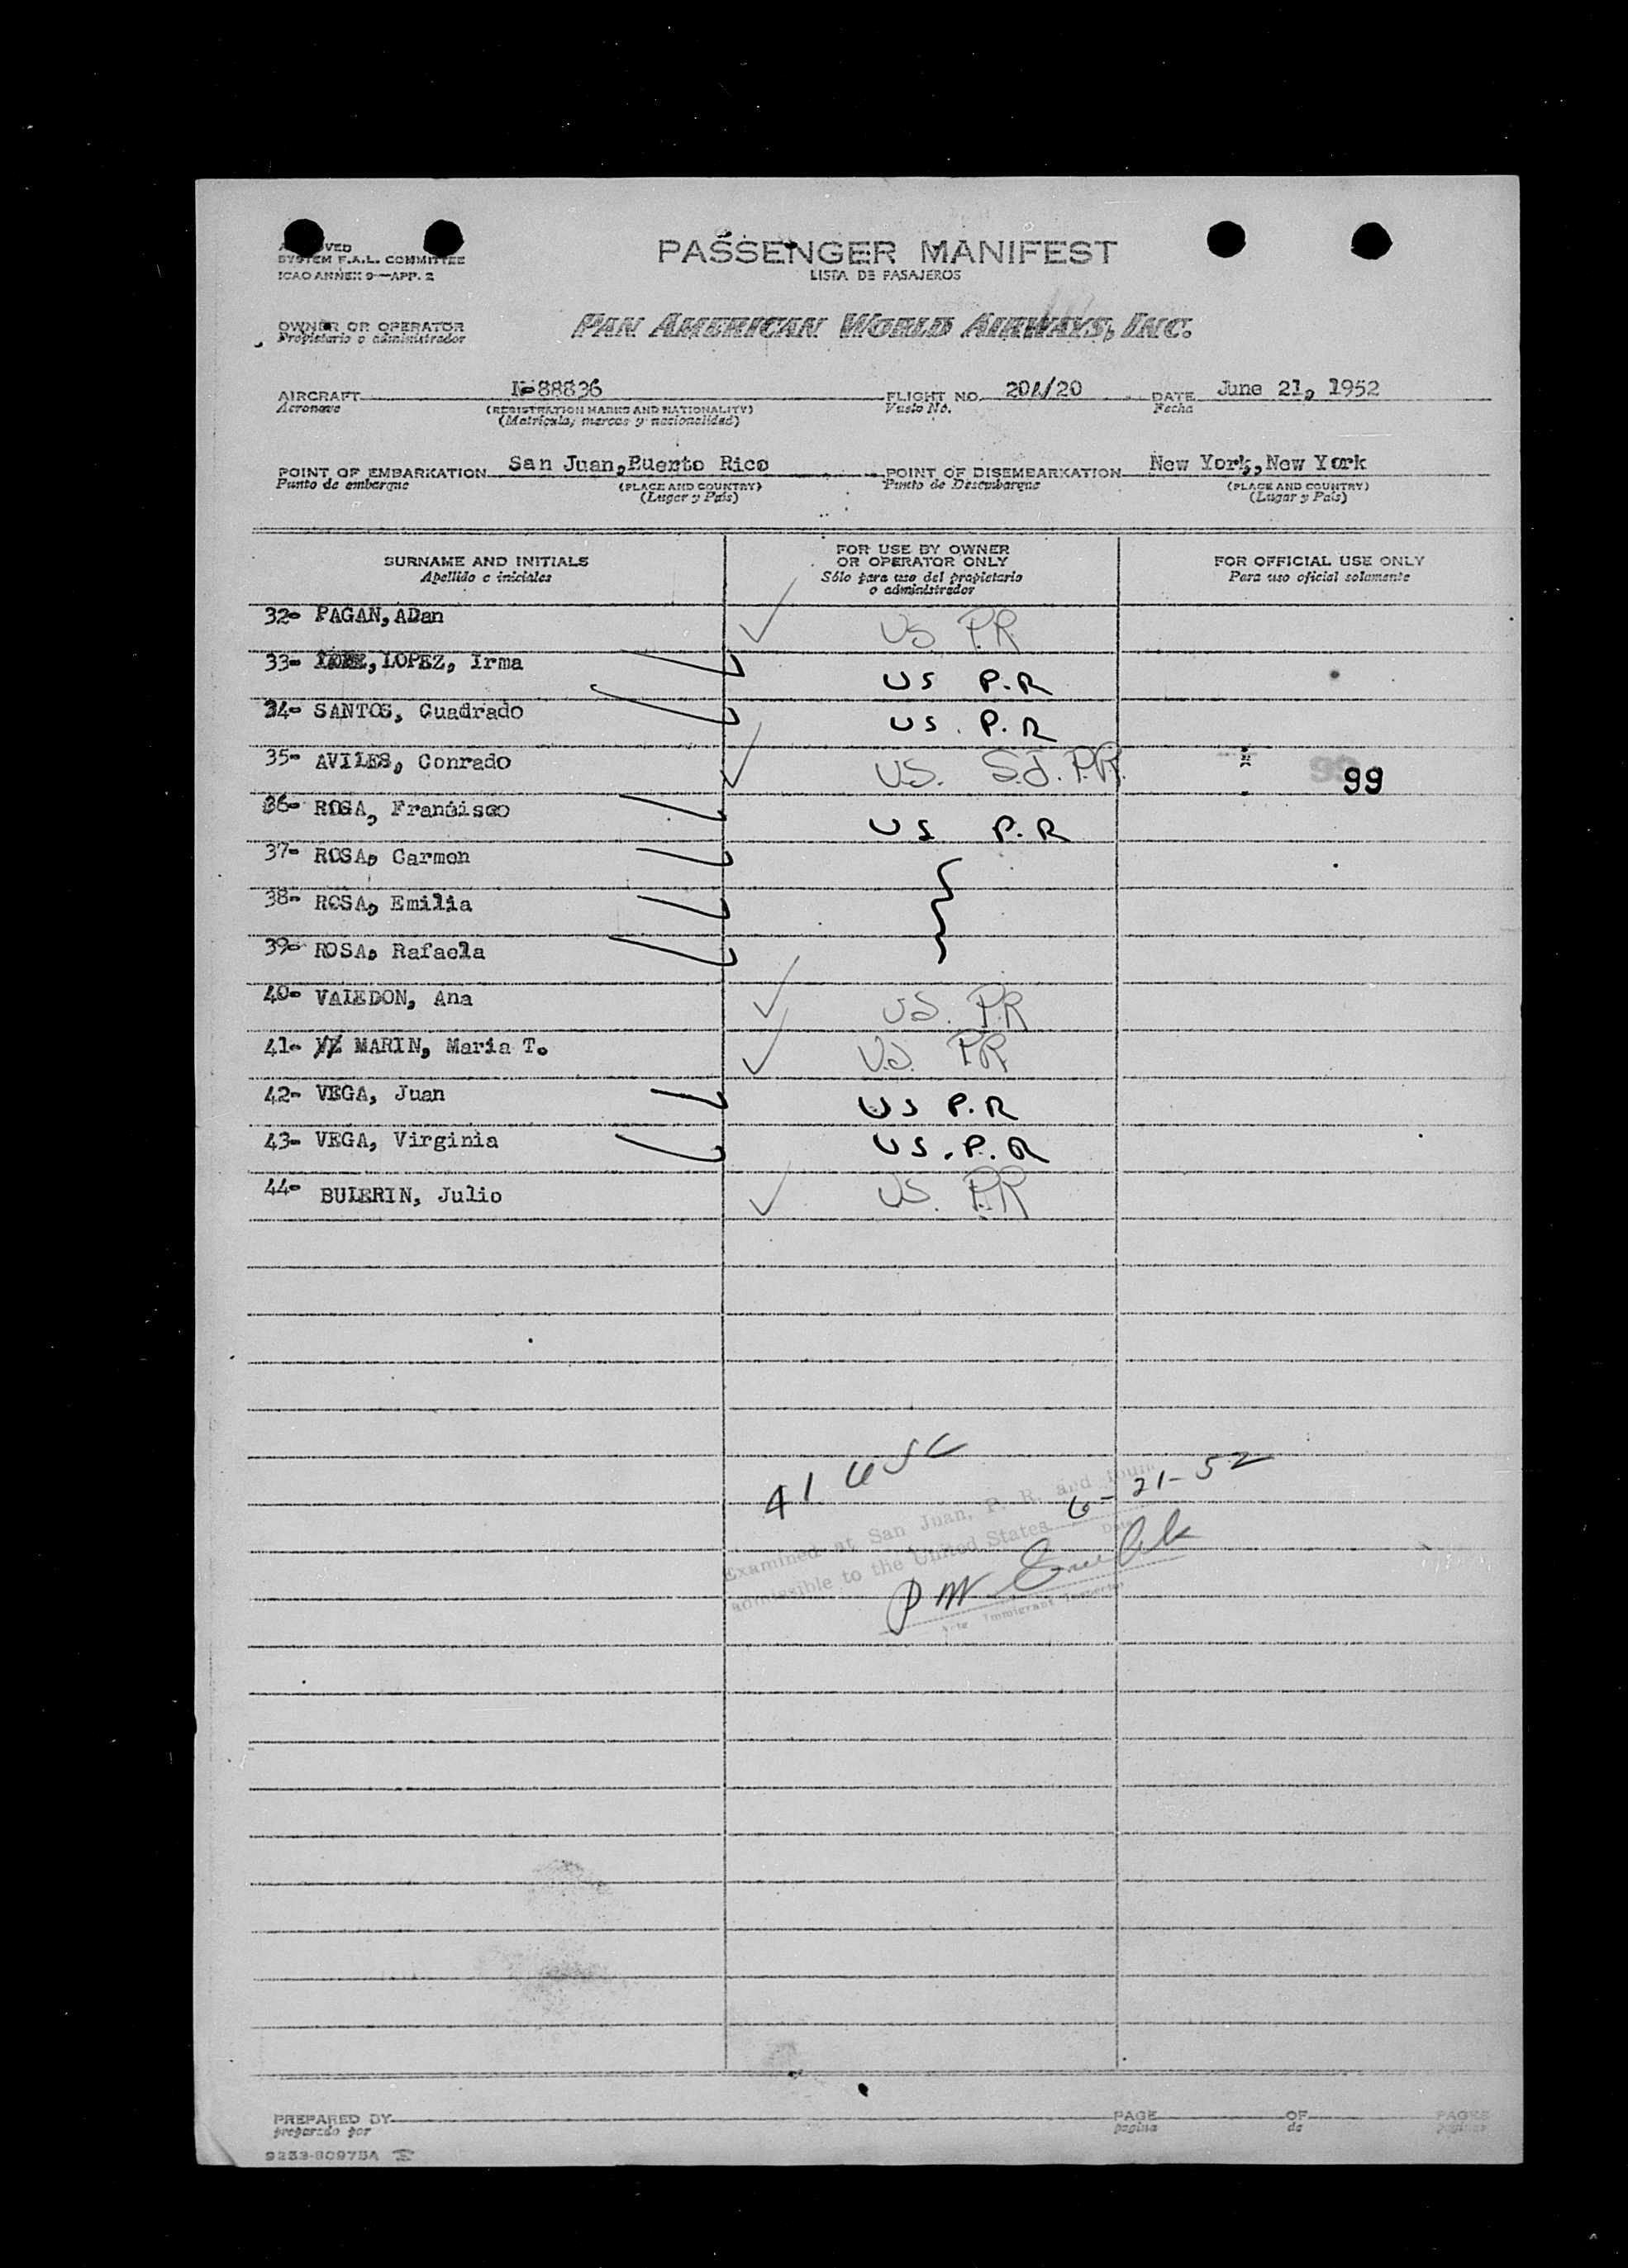 APPROVED
SYSTEM F.A.L. COMMITTEE
ICAO ANNEX 9—APP. 2
PASSENGER MANIFEST
LISTA DE PASAJEROS
OWNER OR OPERATOR
Propietario o administrador
PAN AMERICAN WORLD AIRWAYS, INC.
AIRCRAFT N-88836 FLIGHT NO. 20A/20 DATE June 21, 1952
Aeronave (REGISTRATION MARKS AND NATIONALITY) Vuelo No. Fecha
(Matricula, marcas y nacionalidad)
POINT OF EMBARKATION San Juan, Puerto Rico POINT OF DISEMBARKATION New York, New York
Punto de embarque (PLACE AND COUNTRY) Punto de Desembarque (PLACE AND COUNTRY)
(Lugar y País) (Lugar y País)
SURNAME AND INITIALS
Apellido e iniciales
FOR USE BY OWNER
OR OPERATOR ONLY
Sólo para uso del propietario
o administrador
FOR OFFICIAL USE ONLY
Para uso oficial solamente
32- PAGAN, ADan US P.R
33- LOPEZ, Irma US P.R
34- SANTOS, Cuadrado US. P.R
35- AVILES, Conrado U.S. S.J. P.R. 99
36- ROSA, Francisco US P.R
37- ROSA, Carmen
38- ROSA, Emilia
39- ROSA, Rafaela
40- VALEDON, Ana US. P.R
41- MARIN, Maria T. U.S. P.R
42- VEGA, Juan US P.R
43- VEGA, Virginia US. P. R
44- BULERIN, Julio US. P.R
41 USC
6-21-52
Examined at San Juan, P. R. and found
admissible to the United States
Date
Immigrant Inspector
PREPARED BY PAGE OF PAGES
preparado por pagina de paginas
9253-80975A